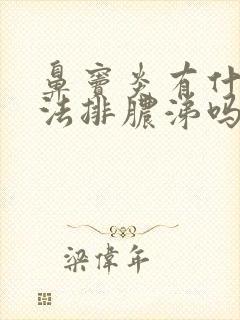 鼻窦炎有什
法排脓涕吗
梁偉年